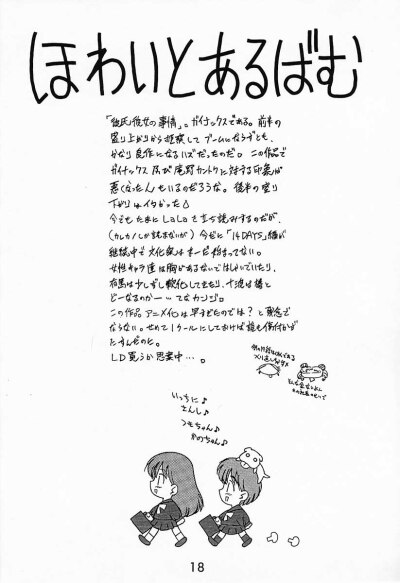 ほわいとあるばむ
「彼氏彼女の事情」。ガイナックスである。前半の
盛り上がりから推察して ブームにならずとも、
かなり良作になるハズだったのだ。この作品で
ガイナックス 及び 庵野カントクに対する印象が
悪くなった人もいるのだろうな。後半の盛り
下がりはイタかった
今でも たまに LaLaを立ち読みするのだが、
(カレカノしか読まないが) 今だに「14DAYS」編が
継続中で 文化祭はまーだ始まってない。
女性キャラ達は胸があるないではしゃいでいたり、
有馬は少しずつ軟化してきたり、十波は椿と
どーなるのかー…てなカンジ。
この作品 アニメ化は 早すぎたのでは?と残念で
ならない。せめて1クールにしておけば 傷付かず
にすんだのにと。
LD買うか思案中…。
いっちに♪
さんし♪
つもちゃん♪
かのちゃん♪
18